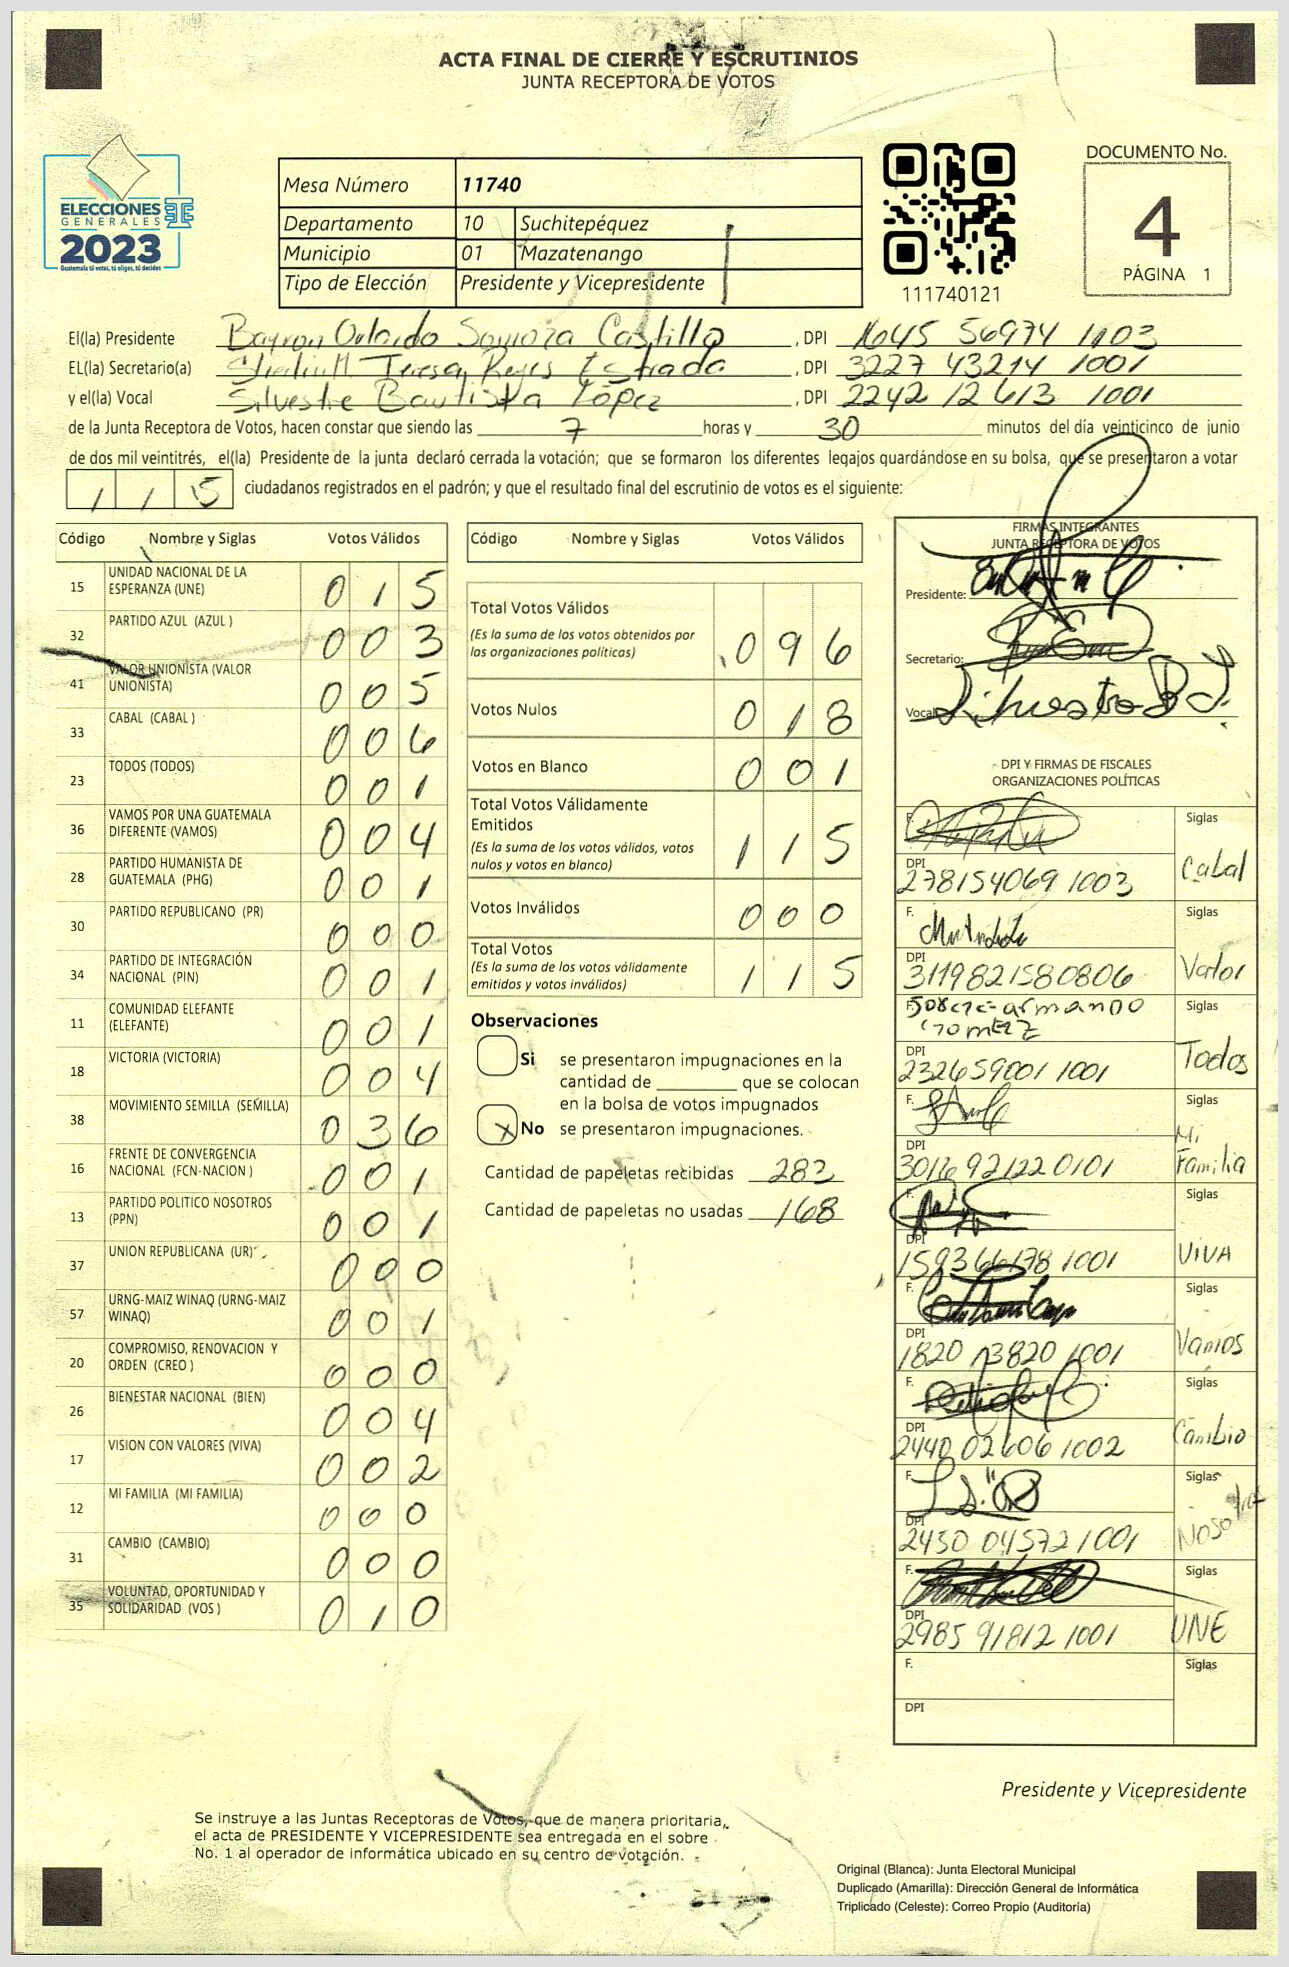 ACTA FINAL DE CIERRE Y ESCRUTINIOS
JUNTA RECEPTORA DE VOTOS
ELECCIONES
GENERALES
2023
Guatemala tú votas, tú eliges, tú decides
Mesa Número 11740
Departamento 10 Suchitepéquez
Municipio 01 Mazatenango
Tipo de Elección Presidente y Vicepresidente
111740121
DOCUMENTO No.
4
PÁGINA 1
El(la) Presidente Bayron Orlando Somoza Castillo, DPI 1645 56974 1103
EL(la) Secretario(a) Teresa Reyes Estrada, DPI 3227 43214 1001
y el(la) Vocal Silvestre Bautista López, DPI 2242 12613 1001
de la Junta Receptora de Votos, hacen constar que siendo las 7 horas y 30 minutos del día veinticinco de junio
de dos mil veintitrés, el(la) Presidente de la junta declaró cerrada la votación; que se formaron los diferentes legajos guardándose en su bolsa, que se presentaron a votar
115 ciudadanos registrados en el padrón; y que el resultado final del escrutinio de votos es el siguiente:
Código Nombre y Siglas Votos Válidos
15 UNIDAD NACIONAL DE LA ESPERANZA (UNE) 015
32 PARTIDO AZUL (AZUL ) 003
41 VALOR UNIONISTA (VALOR UNIONISTA) 005
33 CABAL (CABAL ) 006
23 TODOS (TODOS) 001
36 VAMOS POR UNA GUATEMALA DIFERENTE (VAMOS) 004
28 PARTIDO HUMANISTA DE GUATEMALA (PHG) 001
30 PARTIDO REPUBLICANO (PR) 000
34 PARTIDO DE INTEGRACIÓN NACIONAL (PIN) 001
11 COMUNIDAD ELEFANTE (ELEFANTE) 001
18 VICTORIA (VICTORIA) 004
38 MOVIMIENTO SEMILLA (SEMILLA) 036
16 FRENTE DE CONVERGENCIA NACIONAL (FCN-NACION ) 001
13 PARTIDO POLITICO NOSOTROS (PPN) 001
37 UNION REPUBLICANA (UR) 000
57 URNG-MAIZ WINAQ (URNG-MAIZ WINAQ) 001
20 COMPROMISO, RENOVACION Y ORDEN (CREO ) 000
26 BIENESTAR NACIONAL (BIEN) 004
17 VISION CON VALORES (VIVA) 002
12 MI FAMILIA (MI FAMILIA) 000
31 CAMBIO (CAMBIO) 000
35 VOLUNTAD, OPORTUNIDAD Y SOLIDARIDAD (VOS ) 010
Código Nombre y Siglas Votos Válidos
Total Votos Válidos 096
(Es la suma de los votos obtenidos por
las organizaciones políticas)
Votos Nulos 018
Votos en Blanco 001
Total Votos Válidamente
Emitidos 115
(Es la suma de los votos válidos, votos
nulos y votos en blanco)
Votos Inválidos 000
Total Votos 115
(Es la suma de los votos válidamente
emitidos y votos inválidos)
Observaciones
Si se presentaron impugnaciones en la
cantidad de ________ que se colocan
en la bolsa de votos impugnados
x No se presentaron impugnaciones.
Cantidad de papeletas recibidas 283
Cantidad de papeletas no usadas 168
FIRMAS INTEGRANTES
JUNTA RECEPTORA DE VOTOS
Presidente:
Secretario:
Vocal: Silvestre B L.
DPI Y FIRMAS DE FISCALES
ORGANIZACIONES POLÍTICAS
F. Siglas
DPI Cabal
278154069 1003
F. Siglas
DPI Valor
3119821580806
F. armando Siglas
DPI Todos
232659001 1001
F. Siglas
DPI Mi Familia
3016 921220101
F. Siglas
DPI VIVA
159366178 1001
F. Siglas
DPI Vamos
1820 13820 1001
F. Siglas
DPI Cambio
2440 02606 1002
F. Siglas
DPI Nosotros
2450 04572 1001
F. Siglas
DPI UNE
2985 91812 1001
F. Siglas
DPI
Presidente y Vicepresidente
Se instruye a las Juntas Receptoras de Votos, que de manera prioritaria,
el acta de PRESIDENTE Y VICEPRESIDENTE sea entregada en el sobre
No. 1 al operador de informática ubicado en su centro de votación.
Original (Blanca): Junta Electoral Municipal
Duplicado (Amarilla): Dirección General de Informática
Triplicado (Celeste): Correo Propio (Auditoría)